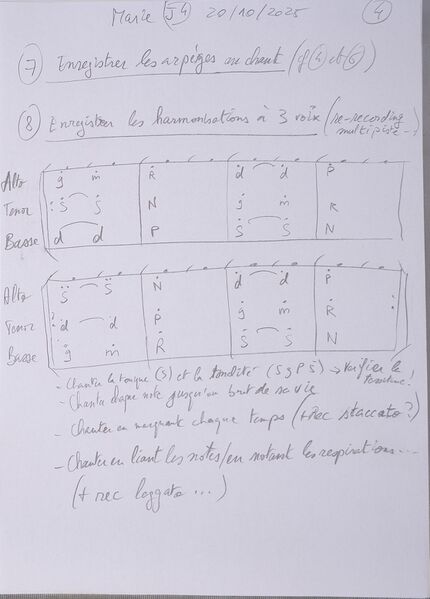 Marie J4 20/10/2025 4
7 Enregistrer les arpèges au chant (cf 4 et 6)
8 Enregistrer les harmonisations à 3 voix (re-recording
multipiste...)
Alto g m Ṙ ḋ d Ṗ
Tenor : S S N g m R
Basse d d P S S N
Alto S̈ S̈ Ṅ ḋ d Ṗ
Tenor : d d Ṗ g m Ṙ :
Basse g m Ṙ S S N
- Chanter la tonique (S) et la tonalité (S g P S) → Vérifier la
tessiture !
- Chanter chaque note jusqu'au bout de sa vie
- Chanter en marquant chaque temps (+ Rec staccato ?)
- Chanter en liant les notes / en notant les respirations...
(+ rec leggato ...)